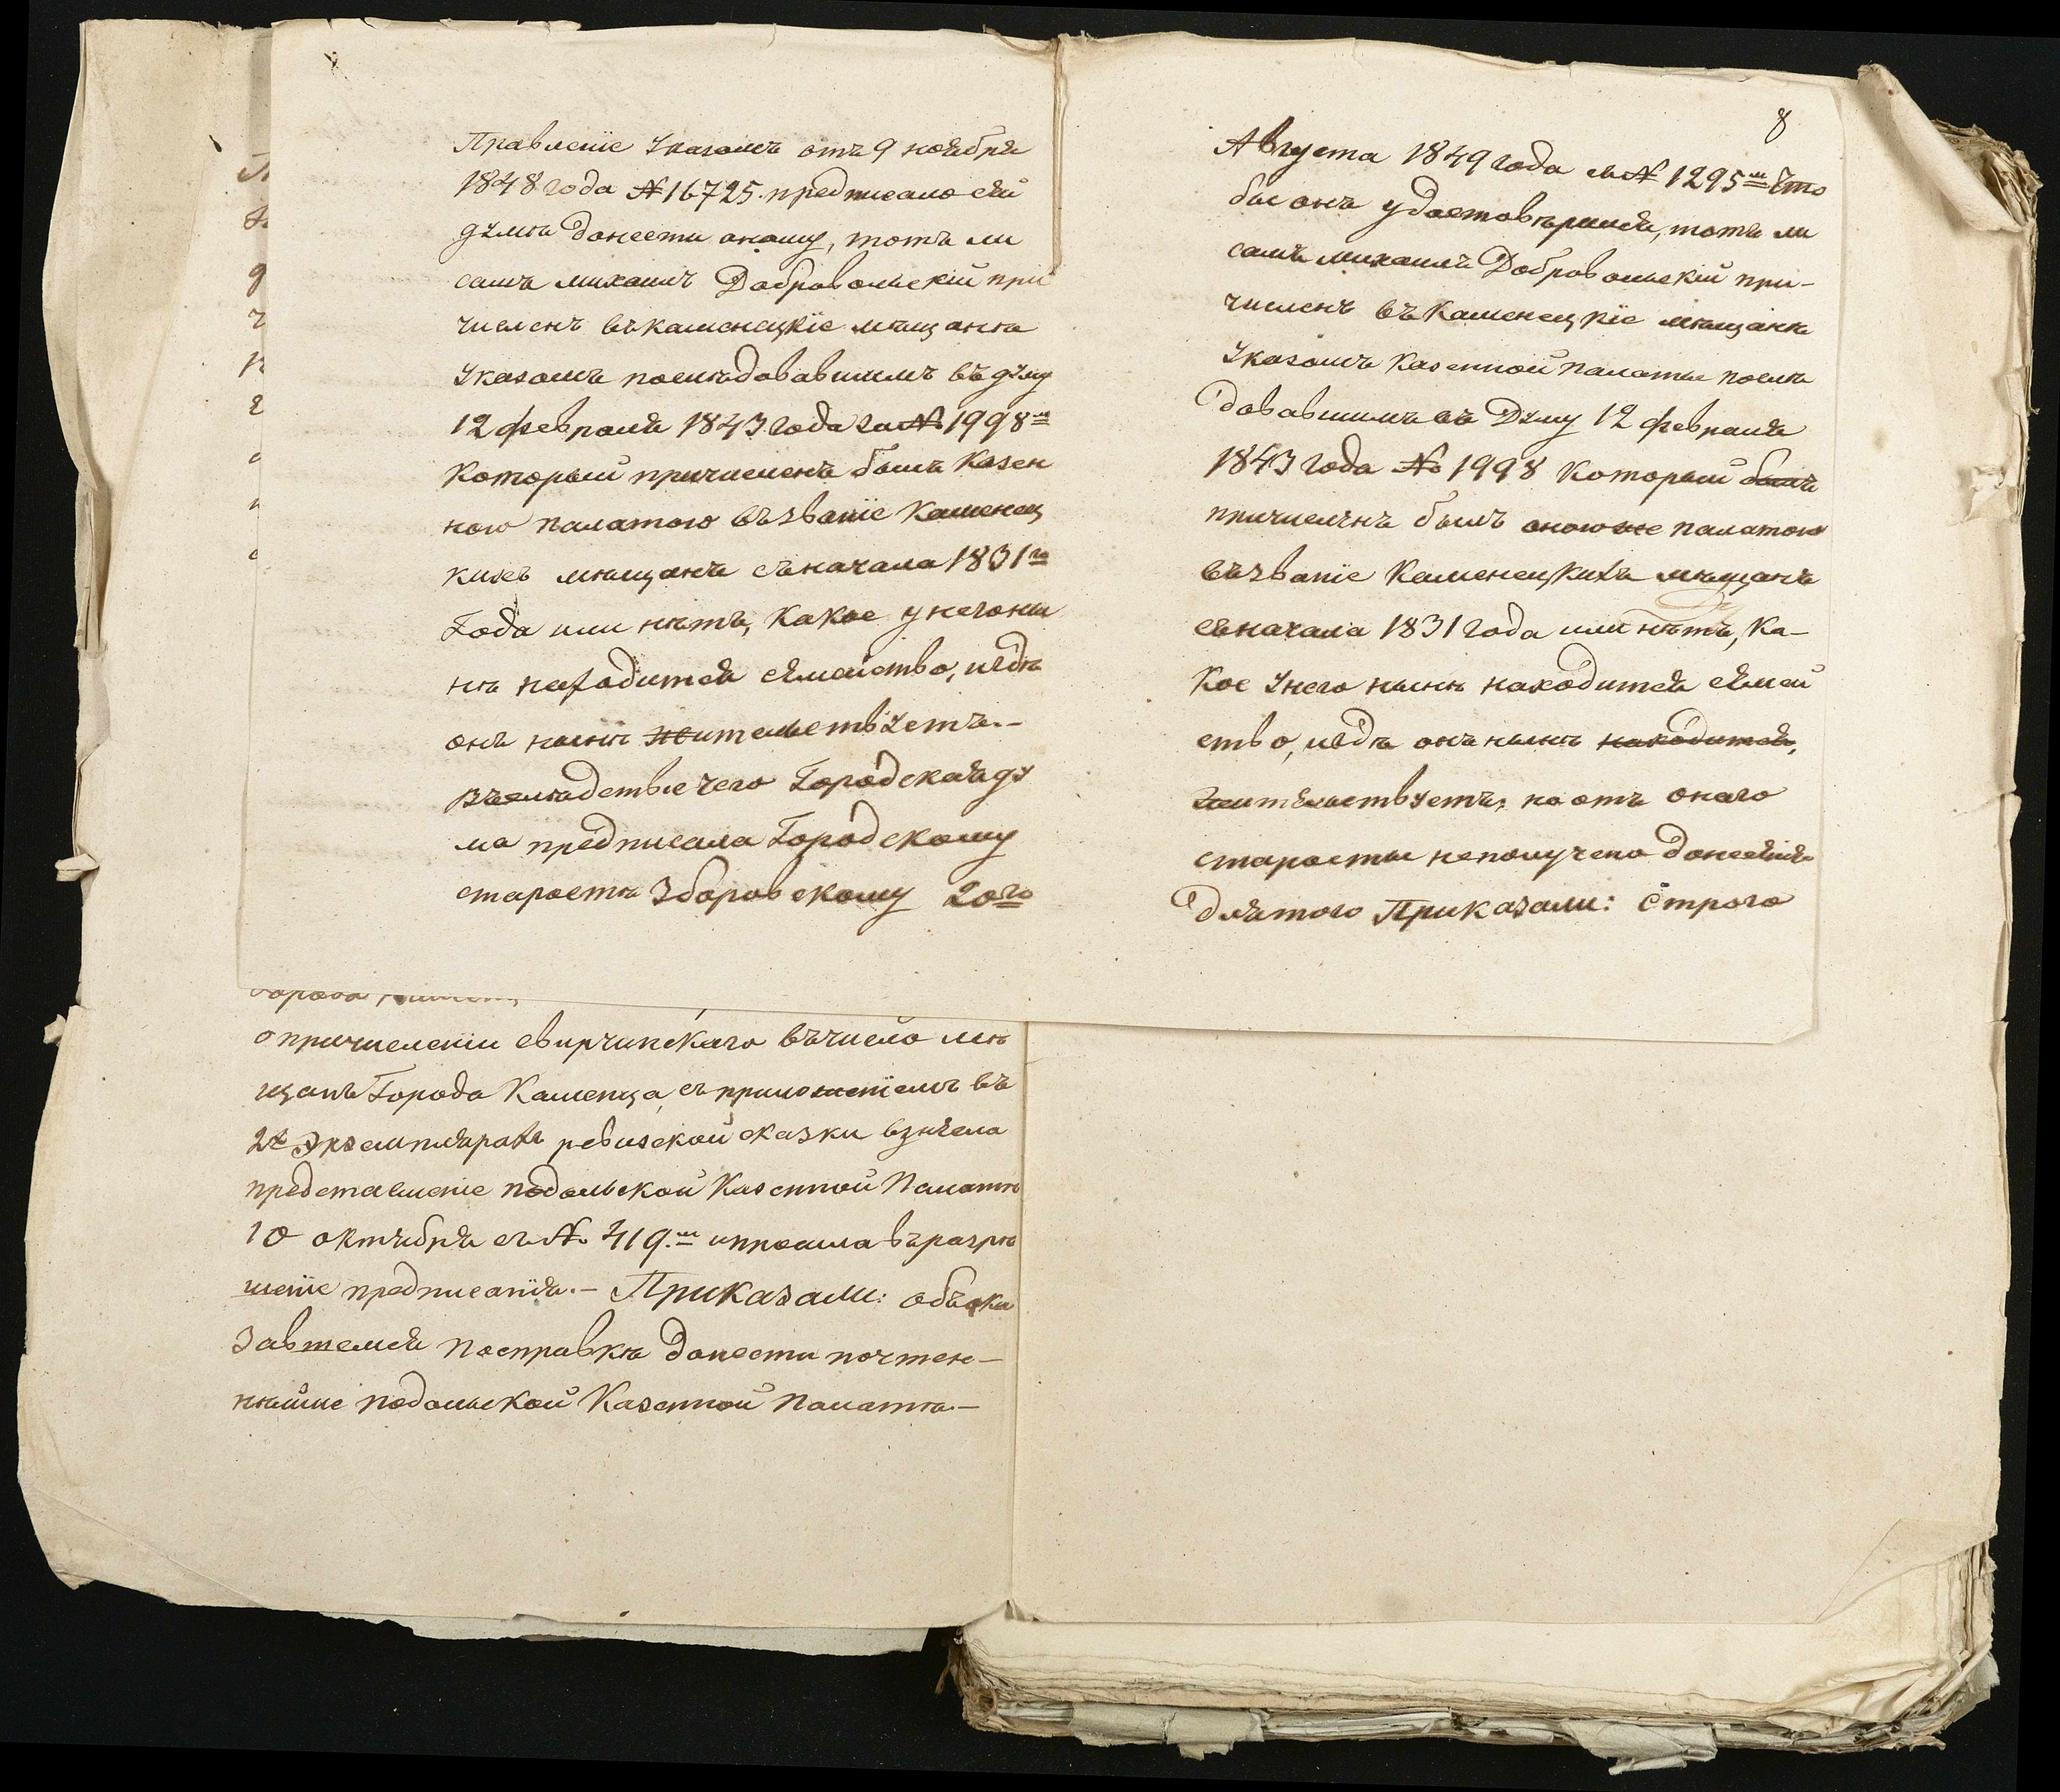 Правленіе Указомъ отъ 9 ноября
1848 года № 16725. предписало сей
думѣ донести оному, тотъ ли
самъ михаилъ Добровольскій при
численъ въ каменецкіе мѣщане
Указомъ послѣдовавшимъ въ думу
12 февраля 1843 года за № 1998ᵐ
который причисленъ былъ Казен
ною палатою въ званіе Каменец
кихъ мѣщанъ съ начала 1831го
Года или нѣтъ, какое у него ны
нѣ находится семейство, игдѣ
онъ нынѣ жительствуетъ.—
Въ слѣдствіе чего Городская ду
ма предписала Городскому
старостѣ Зборовскому 20го
8
Августа 1849 года за № 1295ᵐ что
бы онъ удостовѣрился, тотъ ли
самъ михаилъ Добровольскій при-
численъ въ Каменецкіе мѣщане
Указомъ Казенной палаты послѣ
довавшимъ въ Думу 12 февраля
1843 года № 1998 который былъ
причисленъ былъ оною же палатою
въ званіе Каменецкихъ мѣщанъ
съ начала 1831 года или нѣтъ, Ка-
кое У него нынѣ находится семей
ство, игдѣ онъ нынѣ находится,
жительствуетъ; но отъ онаго
старосты не получено донесенія
для того Приказали: Строго
опричисленіи свирчинскаго въ число мѣ
щанъ Города Каменца, съ приложеніемъ въ
2х Экземплярахъ ревизской сказки
представленіе подольской Казенной Палатѣ
10 октября за № 419.ᵐ и просила въ разрѣ
шеніе предписанія.— Приказали: объ ока
завшемся по справкѣ донести почтен-
нѣйше подольской Казенной Палатѣ.—